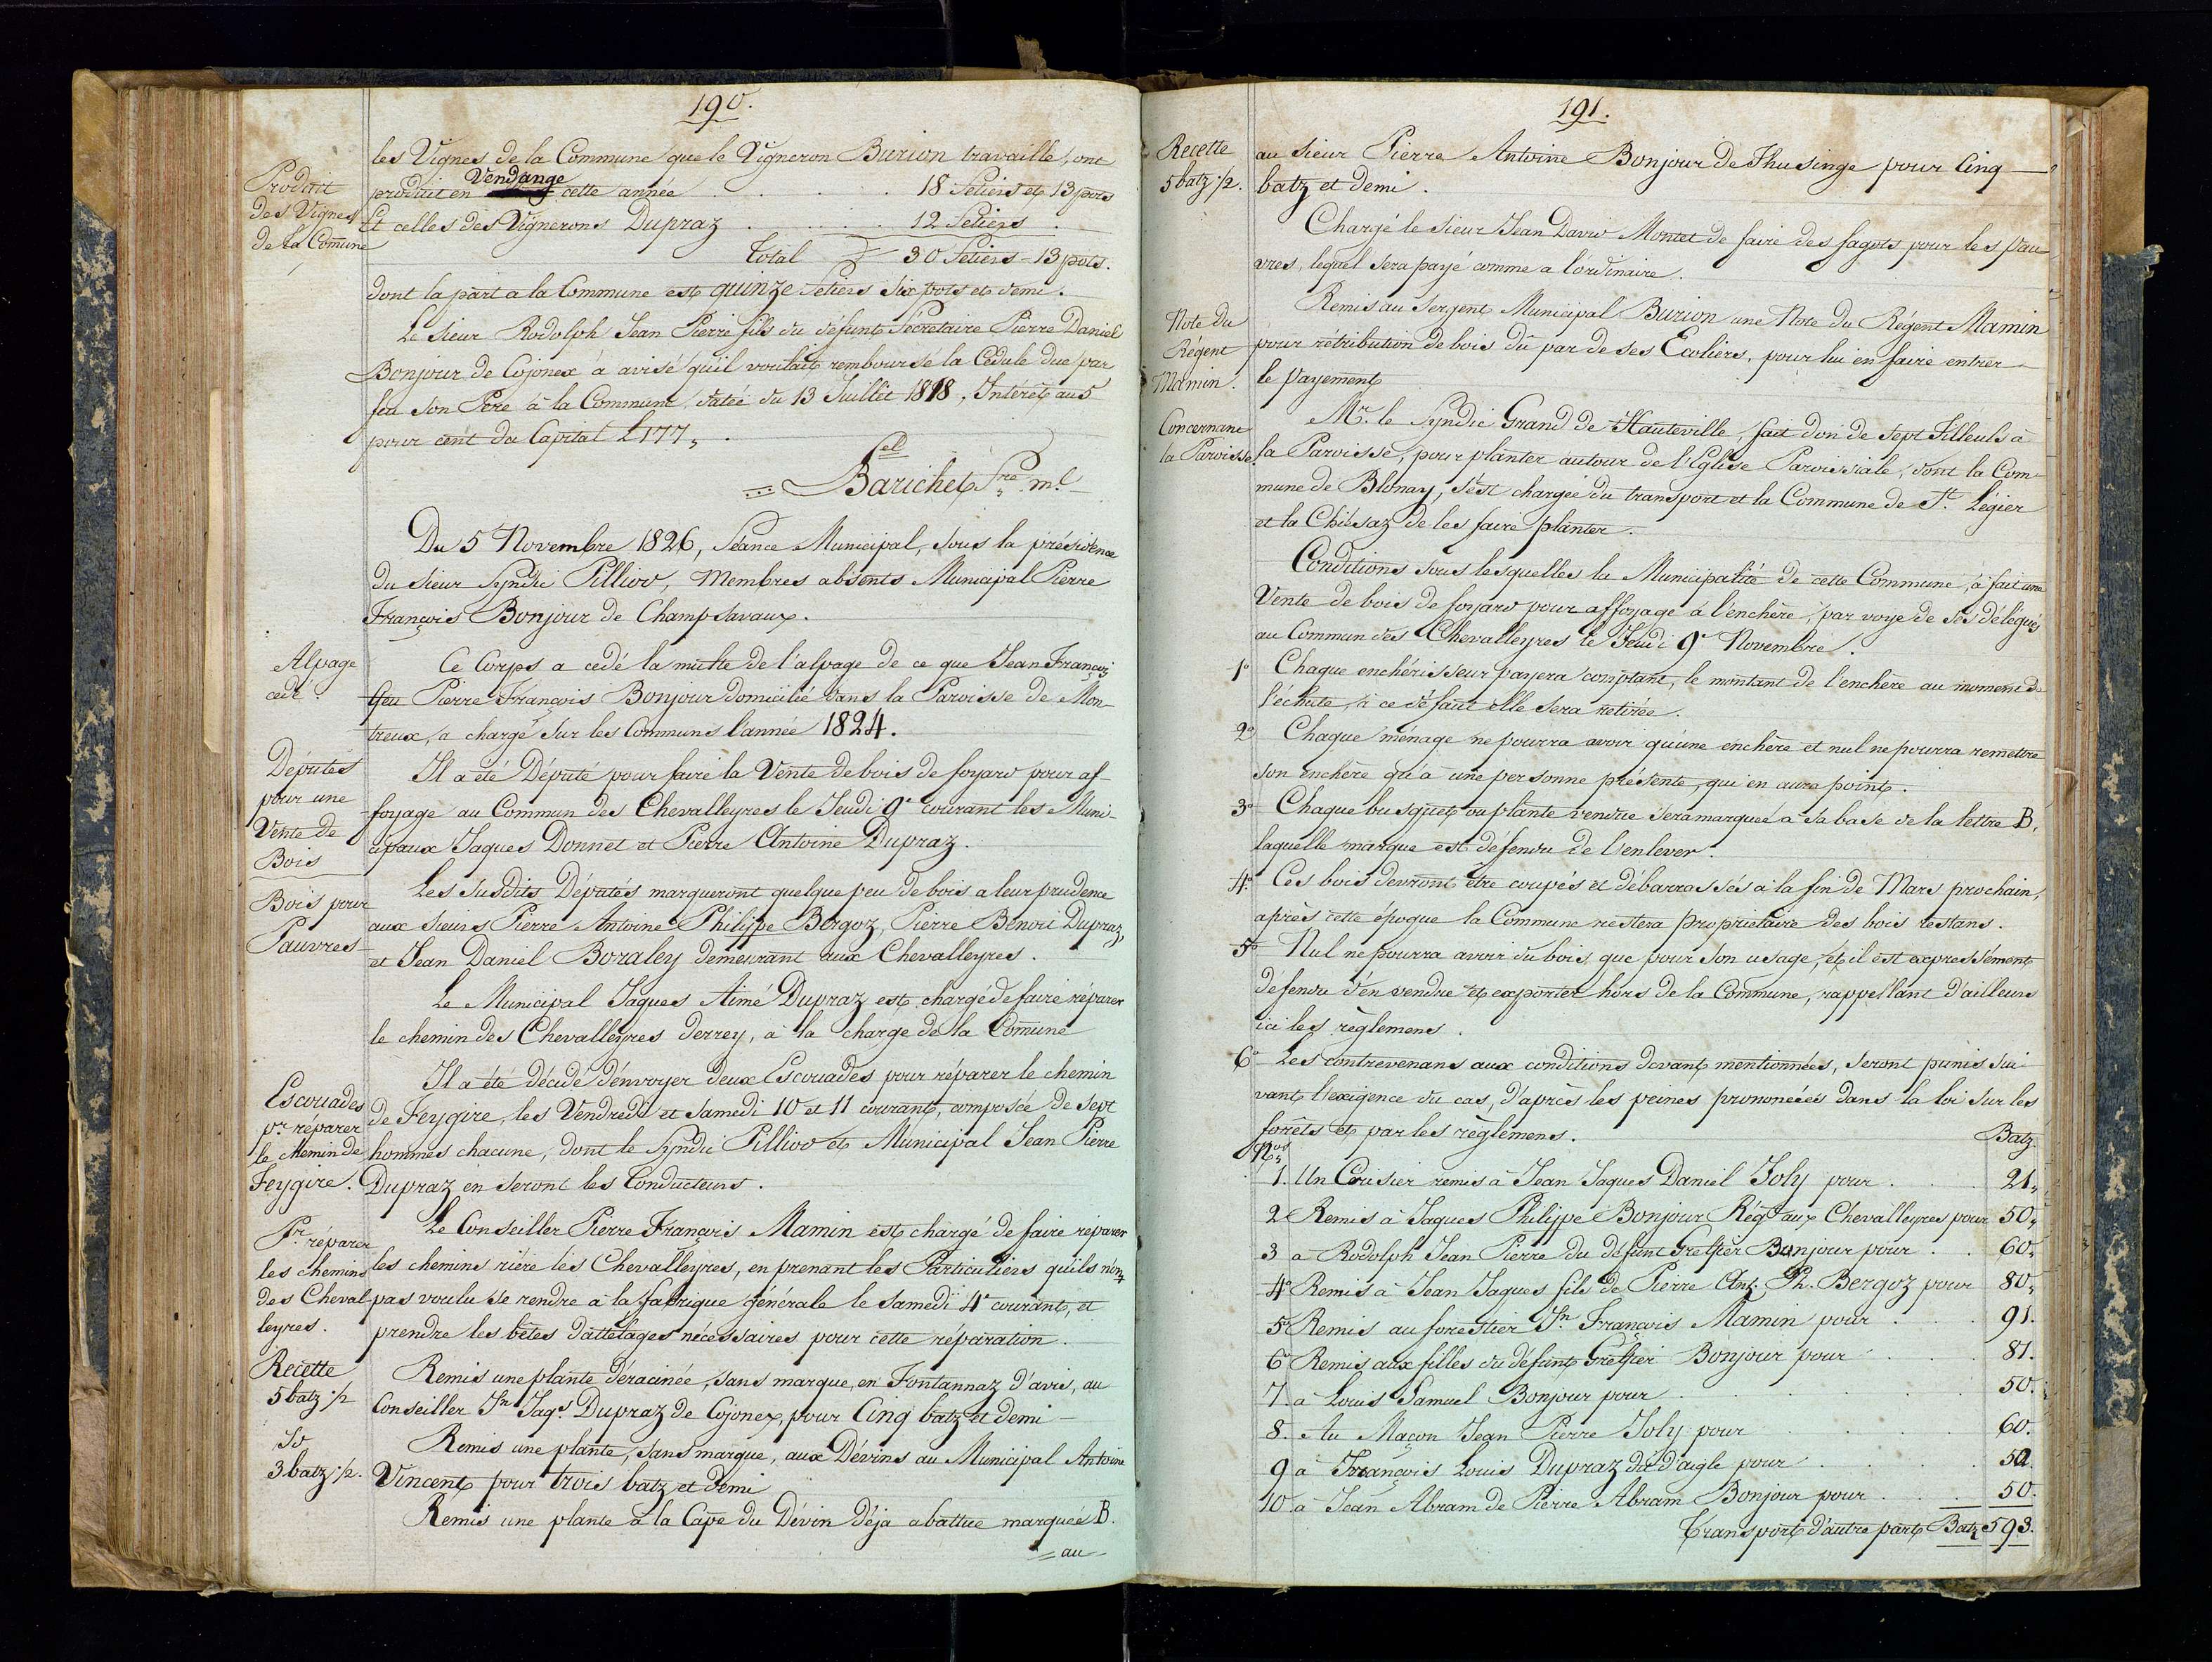 190.
les Vignes de la Commune que le Vigneron Burion travaille, ont
Produit
des Vignes
de la Comune
produit en Vendange cette année . . . . 18 Setiers et 13 pots
Et celles des Vignerons Dupraz . . . . 12 Setiers
Total 30 Setiers - 13 pots.
dont la part a la Commune est quinze Setiers six pots et demi.
Le Sieur Rodolph Jean Pierre fils du défunt Sécretaire Pierre Daniel
Bonjour de Cojonex à avisé qu'il voulait remboursé la Cédule due par
feu son Père à la Commune, datée du 13 Juillet 1818, Intérêt au 5
pour cent du Capital L 177 „ .
Barichet Sre. ml.
Du 5 Novembre 1826, Séance Municipal, sous la présidence
du Sieur Syndic Pilliod, Membres absents Municipal Pierre
François Bonjour de Champsavaux.
Alpage
cedé.
Ce Corps a cedé la multe de l'alpage de ce que Jean François
feu Pierre François Bonjour domicilié dans la Paroisse de Mon-
treux, a chargé sur les Communs l'année 1824.
Députés
pour une
Vente de
Bois
Il a été Député pour faire la Vente de bois de foyard pour af-
foyage au Commun des Chevalleyres le Jeudi 9e courant les Muni-
cipaux Jaques Donnet et Pierre Antoine Dupraz.
Bois pour
Pauvres
Les susdits Députés marqueront quelque peu de bois a leur prudence
aux Sieurs Pierre Antoine Philippe Bergoz, Pierre Benoit Dupraz,
et Jean Daniel Boraley demeurant aux Chevalleyres.
Le Municipal Jaques Aimé Dupraz est chargé de faire réparer
le chemin des Chevalleyres derrey, a la charge de la Comune
Escouades
pr. réparer
le chemin de
Feygire.
Il a été décidé d'envoyer deux Escouades pour réparer le chemin
de Feygire, les Vendredi et Samedi 10 et 11 courant, composée de Sept
hommes chacune, dont le Syndic Pilliod et Municipal Jean Pierre
Dupraz en seront les Conducteurs.
Pr. réparer
les chemins
des Cheval-
leyres.
Le Conseiller Pierre François Mamin est chargé de faire réparer
les chemins rière les Chevalleyres, en prenant les Particuliers qu'ils n'ont
pas voulu se rendre à la fabrique générale le Samedi 4e courant, et
prendre les bêtes d'attelages nécessaires pour cette réparation.
Recette
5 batz 1/2
Remis une plante déracinée, sans marque, en Fontannaz d'avis, au
Conseiller Jn Jaqs. Dupraz de Cojonex, pour Cinq batz et demi
Id
3 batz 1/2.
Remis une plante, sans marque, aux Dévins au Municipal Antoine
Vincent pour trois batz et demi
Remis une plante à la Cape du Dévin déja abattue marquée B.
au
191.
Recette
5 batz 1/2.
au Sieur Pierre Antoine Bonjour de Thusinge pour Cinq
batz et demi.
Chargé le Sieur Jean David Montet de faire des fagots pour les Pau
vres, lequel sera payé comme a l'ordinaire.
Note du
Régent
Mamin.
Remis au Sergent Municipal Burion une Note du Régent Mamin
pour rétribution de bois dû par de ses Ecoliers, pour lui en faire entrer
le payement
Concernant
la Paroisse
Mr. le Syndic Grand de Hauteville, fait don de Sept Tilleuls à
la Paroisse, pour planter autour de l'Eglise Paroissiale, dont la Com-
mune de Blonay, s'est chargée du transport et la Commune de St. Légier
et la Chiésaz de les faire planter.
Conditions sous lesquelles la Municipalité de cette Commune, à fait une
Vente de bois de foyard pour affoyage à l'enchère, par voye de ses délégués
au Commun des Chevalleyres le Jeudi 9e Novembre.
1o Chaque enchérisseur payera comptant, le montant de l'enchère au moment de
l'échute, à ce défaut elle sera retirée.
2o Chaque ménage ne pourra avoir qu'une enchère et nul ne pourra remettre
son enchère qu'à une personne présente, qui en aura point.
3o Chaque busquet ou plante vendue sera marquée à sa base de la lettre B,
laquelle marque est défendu de l'enlever.
4o Ces bois devront être coupés et débarrassés à la fin de Mars prochain,
après cette époque la Commune restera propriétaire des bois restans.
5o Nul ne pourra avoir du bois, que pour son usage, et il est expressément
défendu d'en vendre et exporter hors de la Commune, rappellant d'ailleurs
ici les règlemens.
6o Les contrevenans aux conditions devant mentionnées, seront punis sui
vant l'exigence du cas, d'après les peines prononcées dans la loi sur les
forêts et par les règlemens.
Nos. Batz
1. Un Cerisier remis à Jean Jaques Daniel Joly pour . . 21„
2 Remis à Jaques Philippe Bonjour Régt aux Chevalleyres pour 50„
3 a Rodolph Jean Pierre du défunt Greffier Bonjour pour . . 60„
4o Remis à Jean Jaques fils de Pierre Ant. Ph. Bergoz pour 80„
5o Remis au forestier Jn. François Mamin pour . . . 91.
6o Remis aux filles du défunt Greffier Bonjour pour . . . 81.
7. a Louis Samuel Bonjour pour . . . . 50.
8. Au Maçon Jean Pierre Joly pour . . . . 60.
9 a François Louis Dupraz dit d'aigle pour . . . . 50.
10. a Jean Abram de Pierre Abram Bonjour pour . . 50.
Transport d'autre part Batz 593.